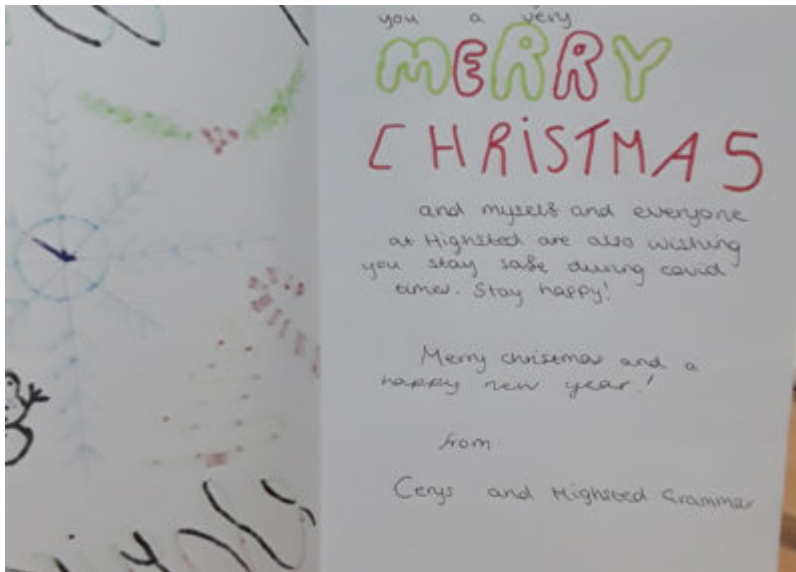 you a very
MERRY
CHRiSTMAS
and myself and everyone
at Highsted are also wishing
you stay safe during covid
times. Stay happy!
Merry christmas and a
happy new year!
from
Cerys and Highsted Grammar